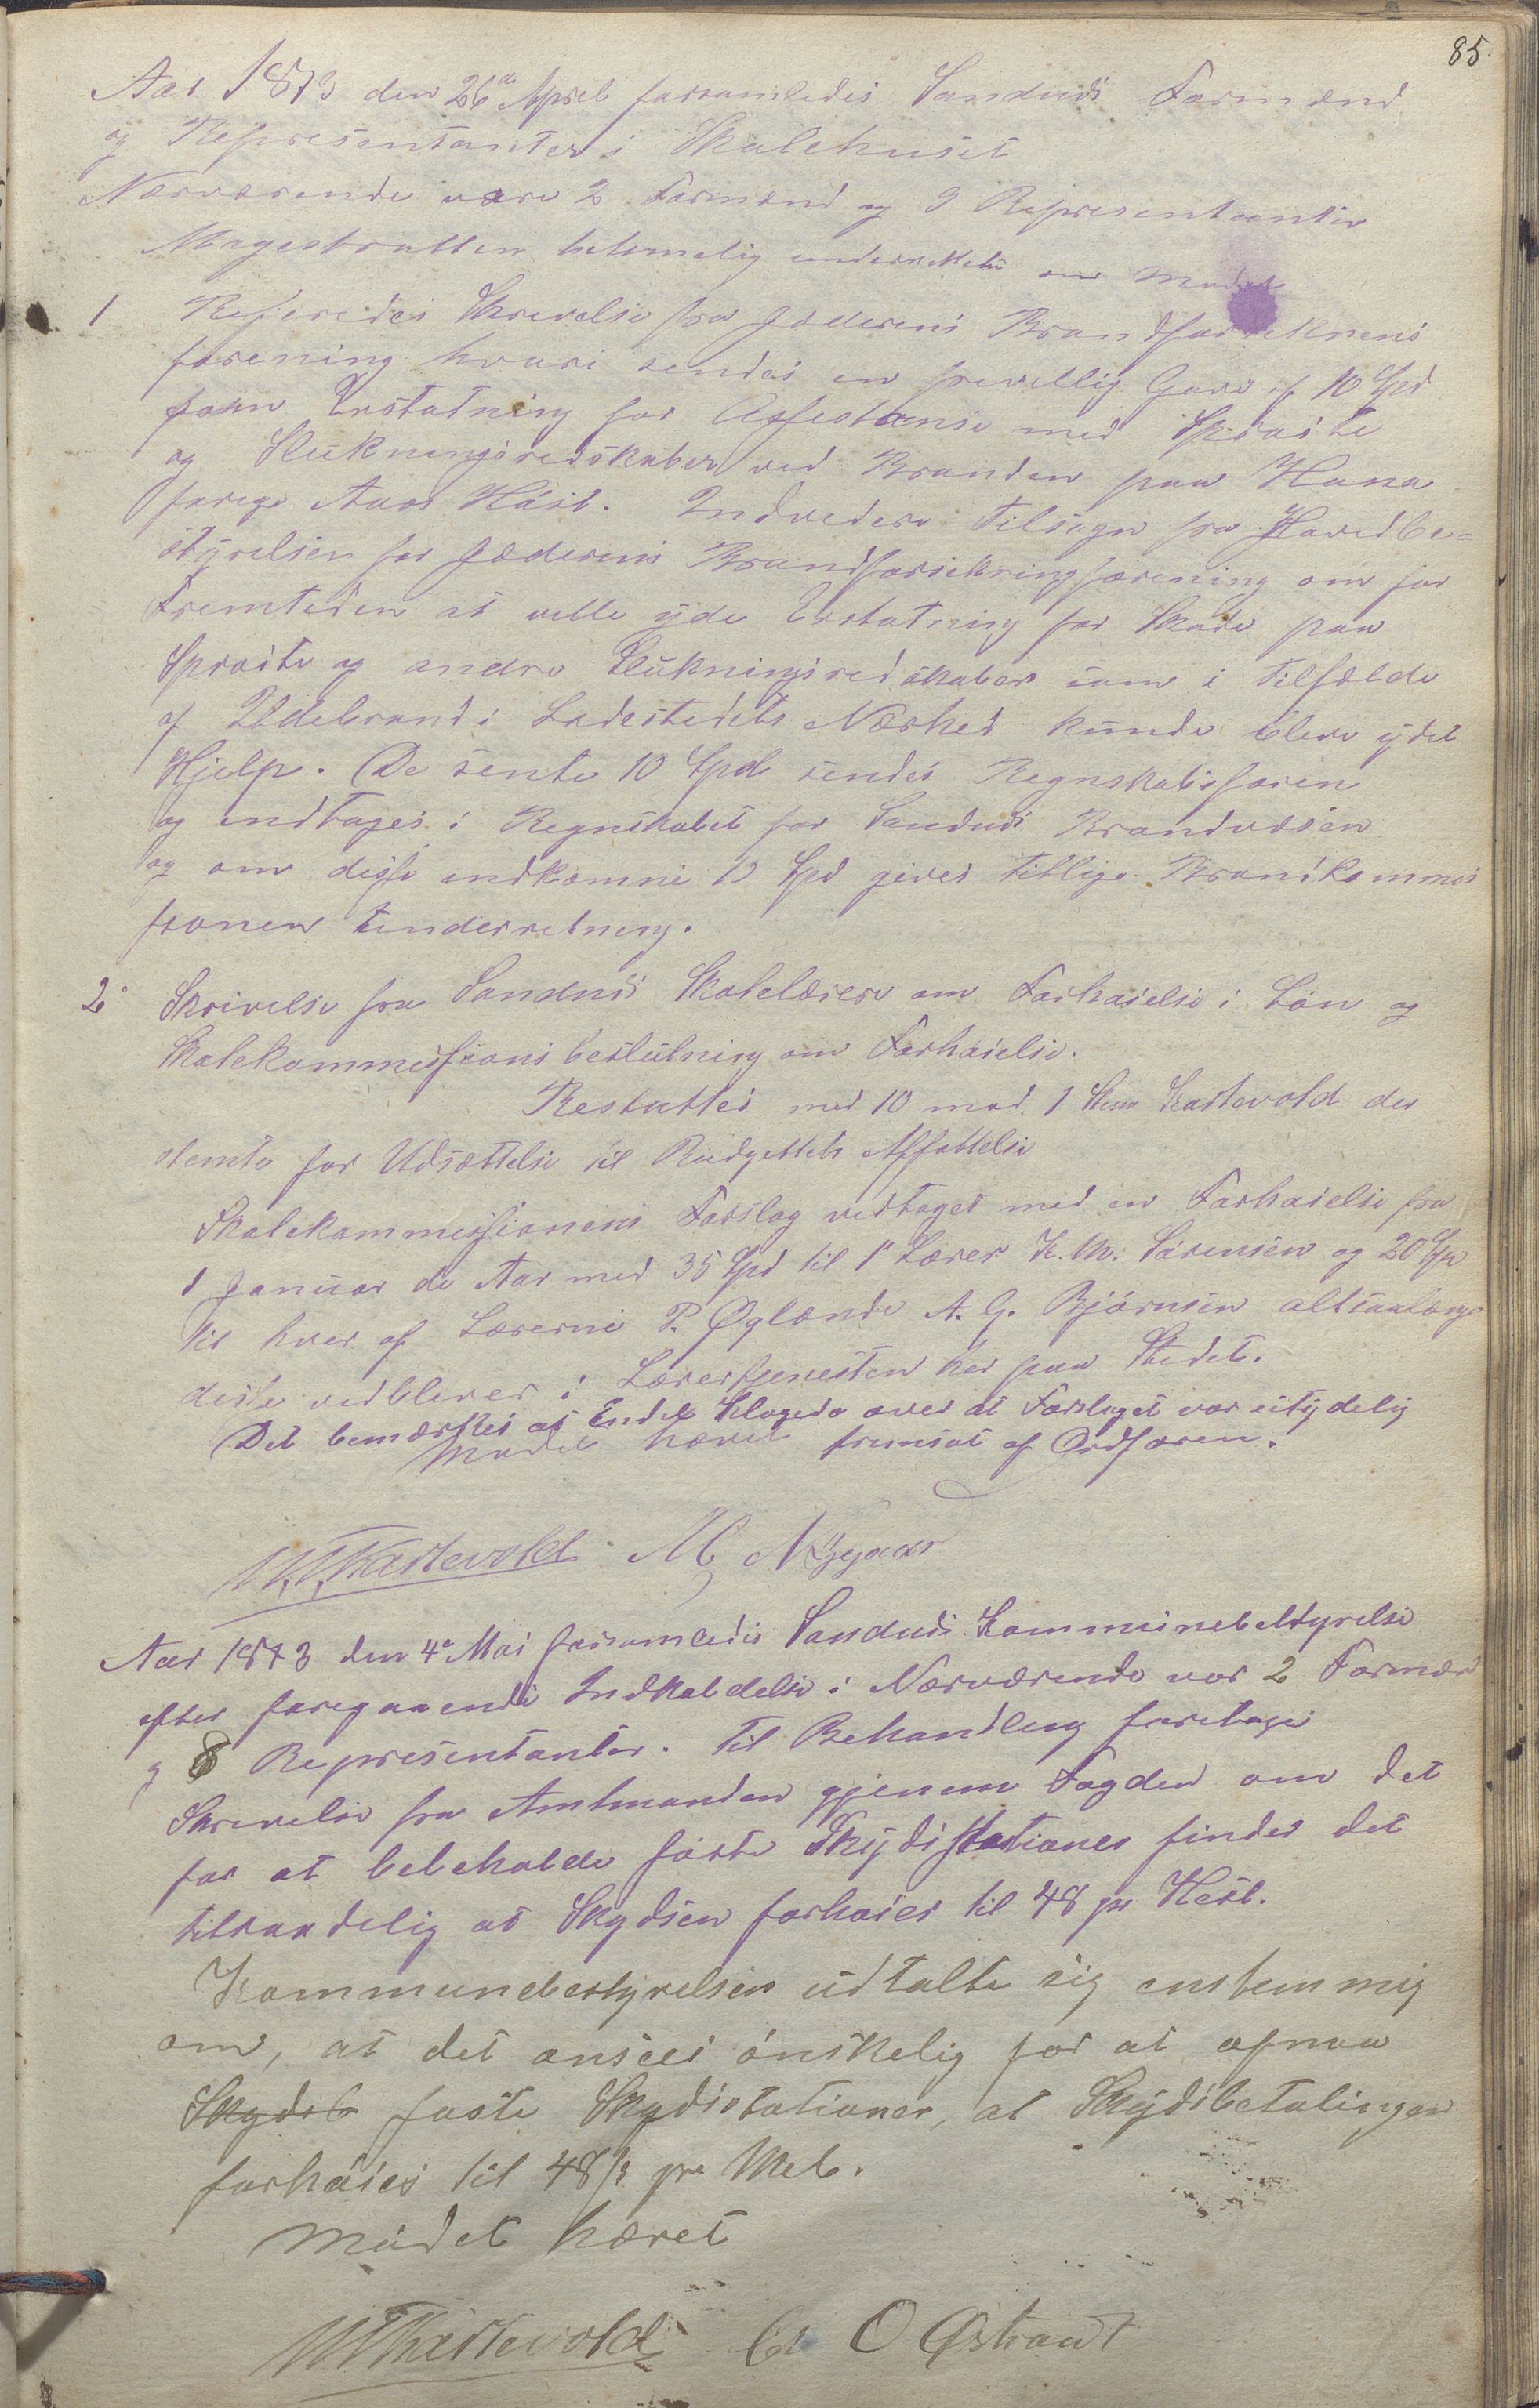 85.
Aar 1873 den 26de April forsamledes Sandnæs Formænd
og Representanter i Skolehuset
Nærværende vare 2 Formænd og 9 Representanter
Magestratten behørelig underrettet om Mødet
1 Refereredes Skrevelse fra Jæderens Brandforsekrens
forening hvori sendes en frevellig Gave af 10 Spd
som Erstatning for Assestanse med Sprøite
og Slukningsredskaber ved Branden paa Hana
forige Aars Høst. Indvedere Tilsagn fra Hovedbe=
styrelsen for Jæderens Brandforsikringforening om for
Fremteden at ville yde Erstatning for Skade paa
Sprøite og andre Slukningsredskaber som i Tilfælde
af Ildebrand i Ladestedets Nærhed kunde bleve ydet
Hjelp. De sente 10 Spd sendes Regnskabsføren
og indtages i Regnskabet for Sandnæs Brandvæsen
og om disse indkomne 10 Spd gives tillige Brandkommis
sionen Underretning.
2 Skrivelse fra Sandnæs Skolelærere om Forhøielse i Løn og
Skolekommissions beslutning om Forhøielse.
Besluttes med 10 mod 1 Stem Kastevold der
stemte for Udsættelse til Budgettets Affattelse
Skolekommissionens Forslag vedtaget med en Forhøielse fra
1 Januar de Aar med 35 Spd til 1ste Lærer K. M. Sørensen og 20 Spd
til hver af Lærerne P. Øglænde A. G. Bjørnsen altsaalænge
disse vedblever i Lærertjenesten her paa Stedet.
Det bemærkes at Endel klagede over at Forslaget var utydelig
fremsat af Ordføren.
Mødet hævet
M. T. Kastevold M Nygaar
Aar 1873 den 4de Mai forsamledes Sandnæs Kommunebestyrelse
efter foregaaende Indkaldelse i Nærværende var 2 Formænd
og 8 Representanter. Til Behandling foretages
Skrevelse fra Amtmanden gjenem Fogden om det
for at bebeholde faste Skydsstationer findes det
tilraadelig at Skydsen forhøies til 48 pr Hest.
Kommunebestyrelsen udtalte sig enstemmig
om, at det ansees ønskelig for at opnaa
Skydsb faste Skydsstationer, at Skydsbetalingen
forhøies til 48 ß pr Mil.
Mødet hævet
M T Kastevold O Østraadt